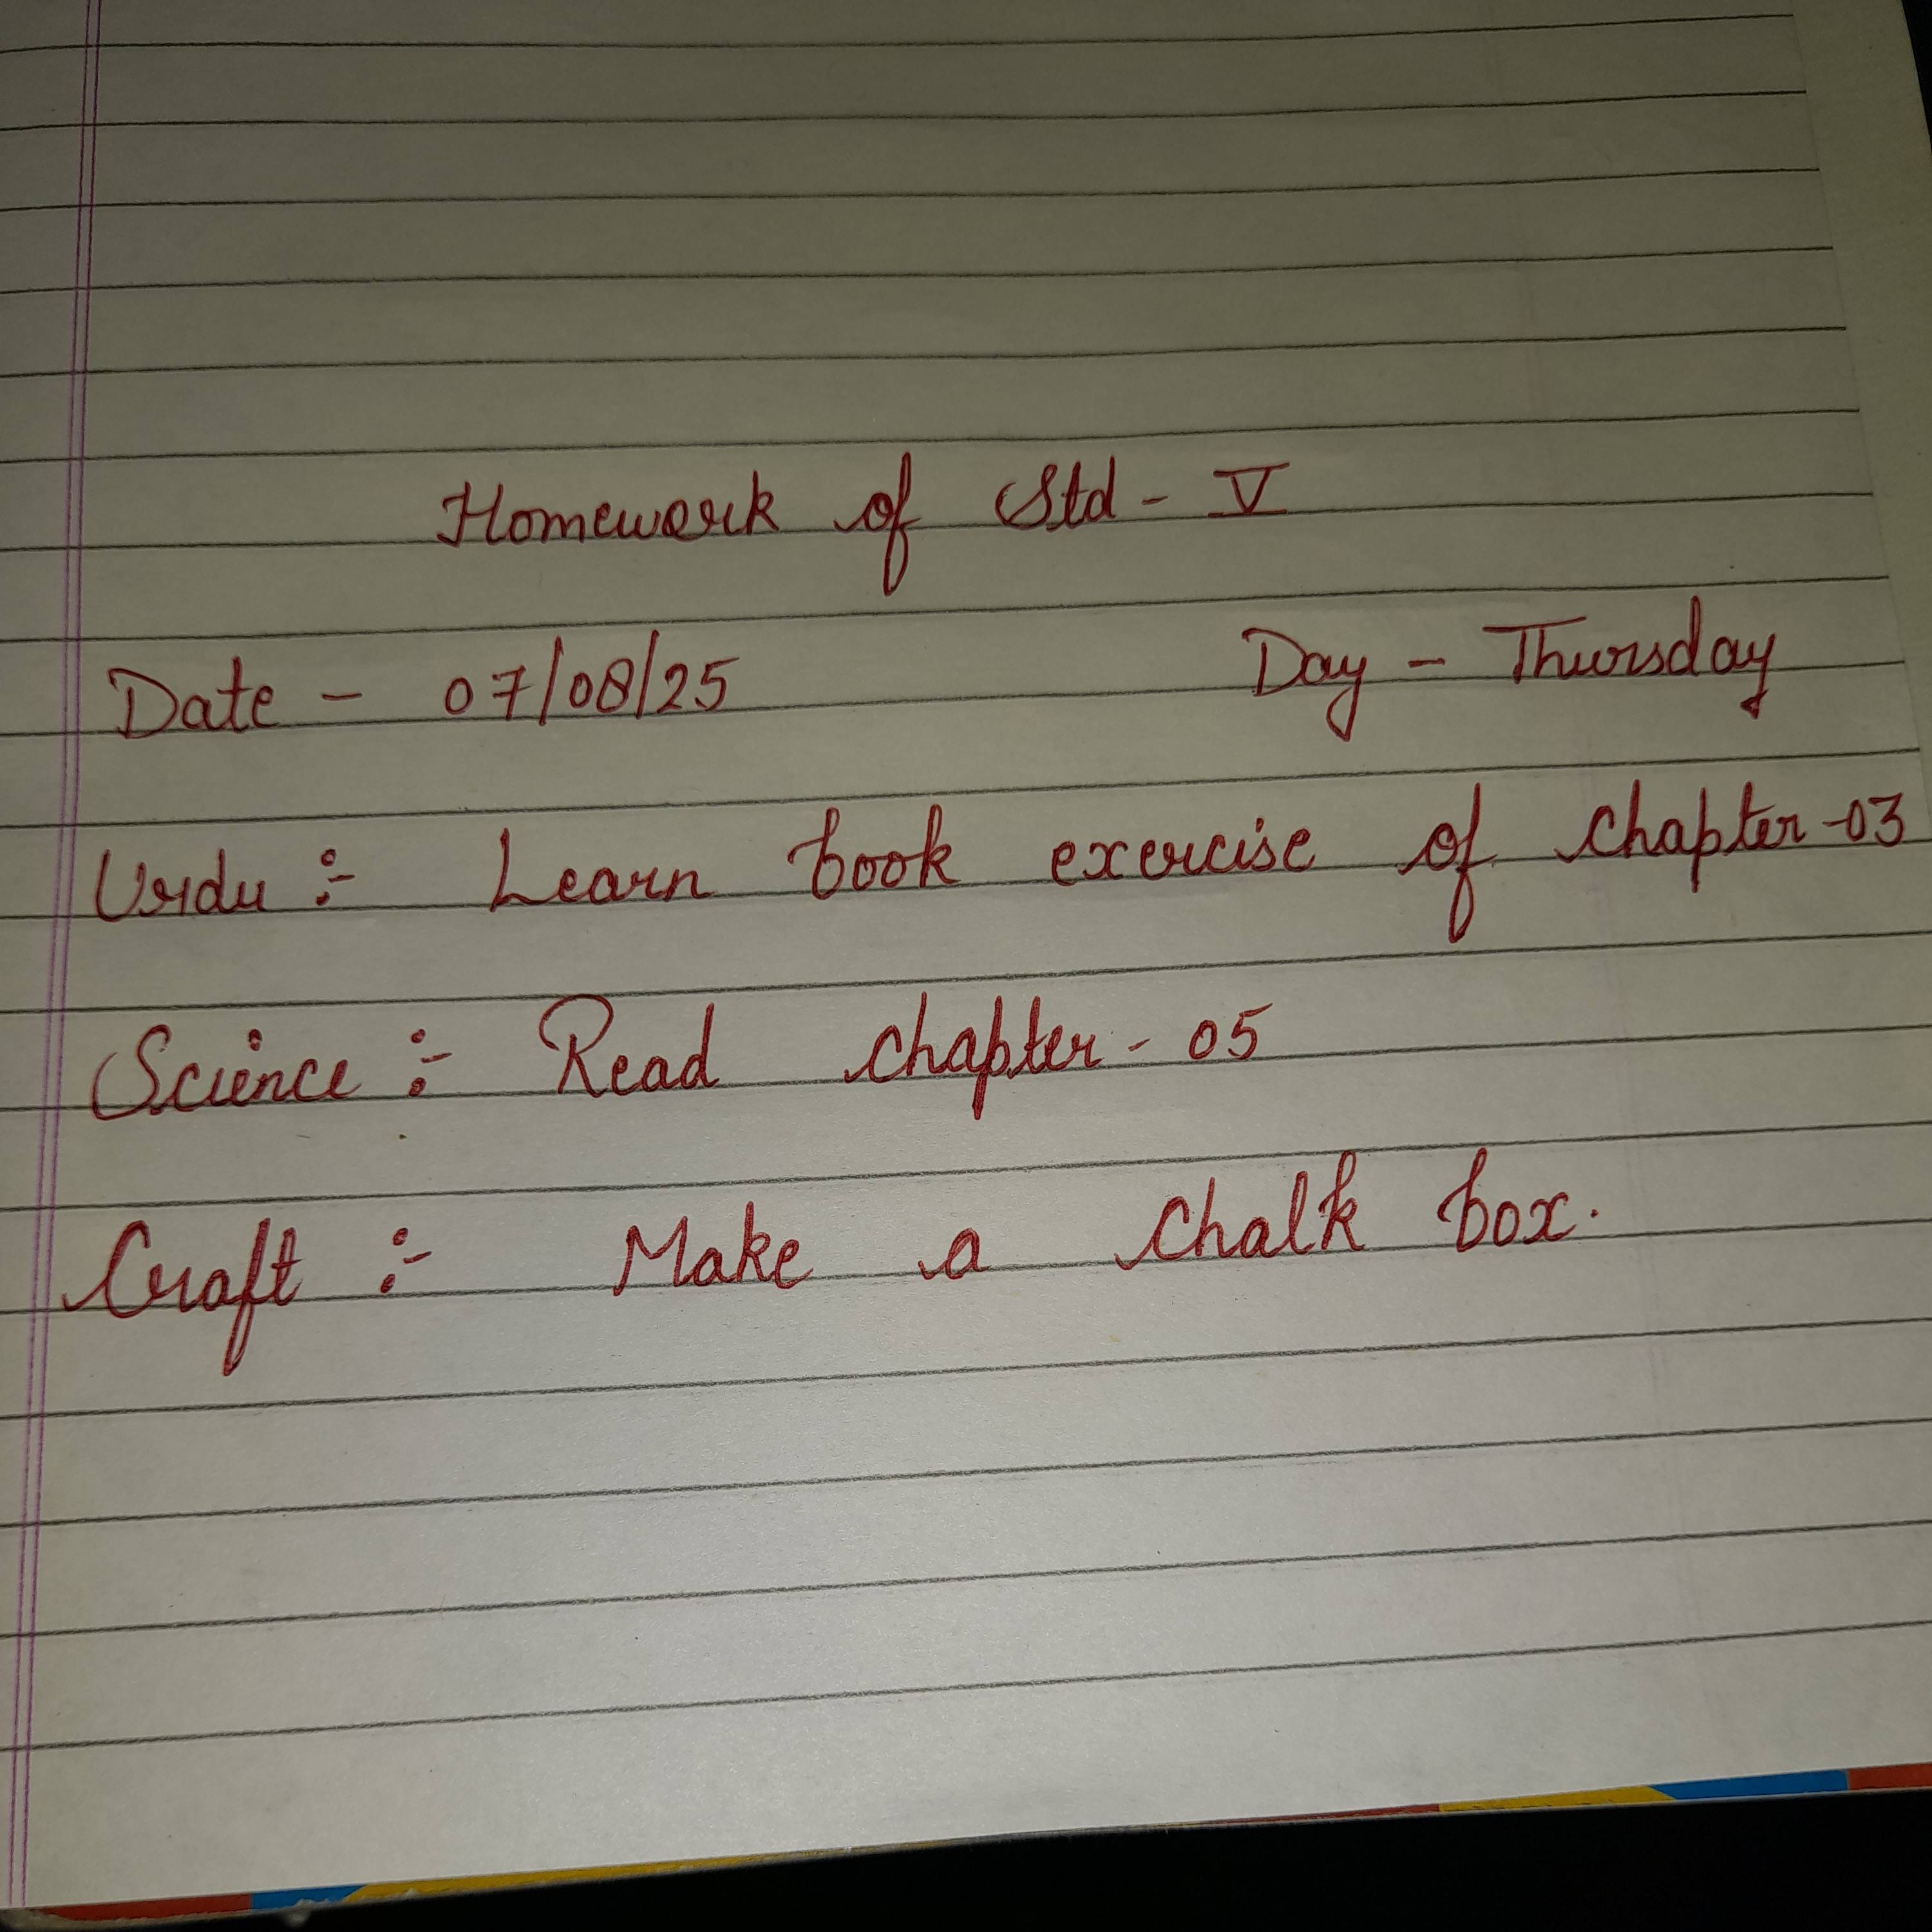 Homework of Std - V
Date - 07/08/25 Day - Thursday
Urdu :- Learn book exercise of chapter-03
Science :- Read chapter - 05
Craft :- Make a chalk box.